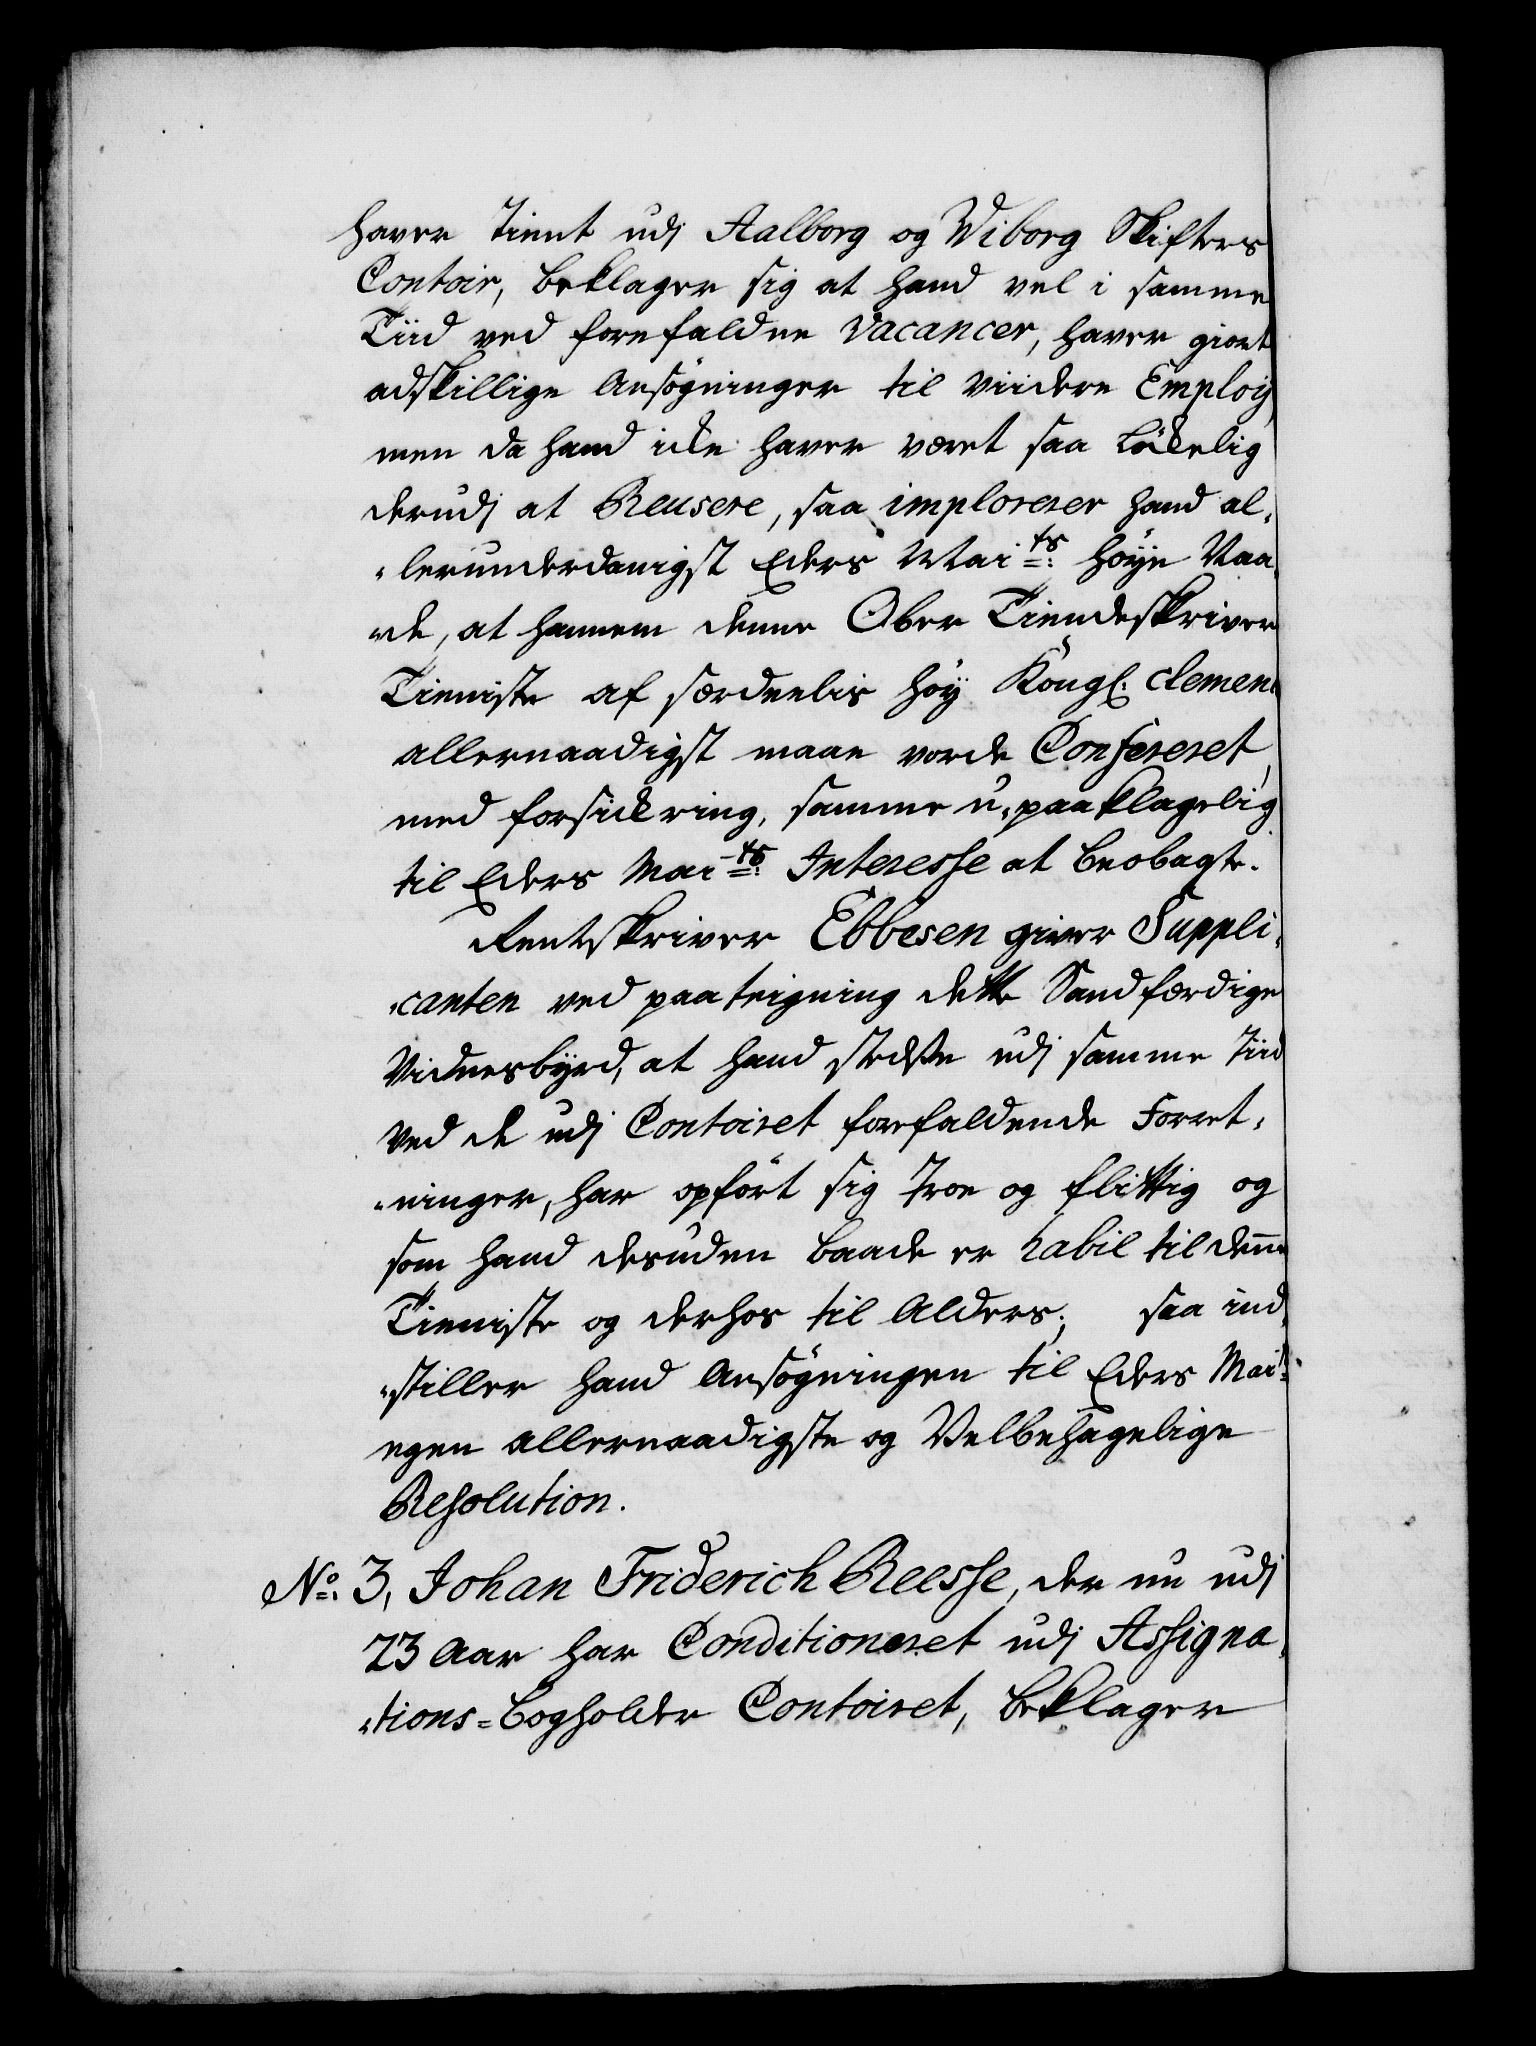 haver tient udj Aalborg og Wiborg Stifters
Contoir, beklager sig at hand vel i samme
Tiid ved forefaldne Vacancer, haver giort
adskillige Ansøgninger til viidere Employ
men da hand icke haver været saa lökelig
derudj at Reusere, saa imploreres hand al„
„lerunderdanigst Eders Mai ts: höye Naa„
„de, at hannem denne Ober Tiendeskriver
Tieniste af særdeelis höy Kongl: clemen
allernaadigst maae vorde Confereret,
med forsickring, samme u„paaklagelig
til Eders Mai ts: Interesse at beobagte.
Rentskriver Ebbesen giver Suppli„
„canten ved paateigning dette Sandfærdige
Vidnesbyrd, at hand stedse udj samme Tiid
ved de udj Contoiret forefaldende Forret„
„ninger, har opfört sig Troe og flittig og
som hand desuden baade er habil til denne
Tieniste og derhos til Alders; saa ind„
„stiller hand Ansögningen til Eders Mai ts:
egen allernaadigste og Velbehagelige
Resolution.
No: 3, Johan Friderich Reesse, der nu udj
23 Aar har Conditioneret udj Assigna„
„tions=bogholder Contoiret, beklager